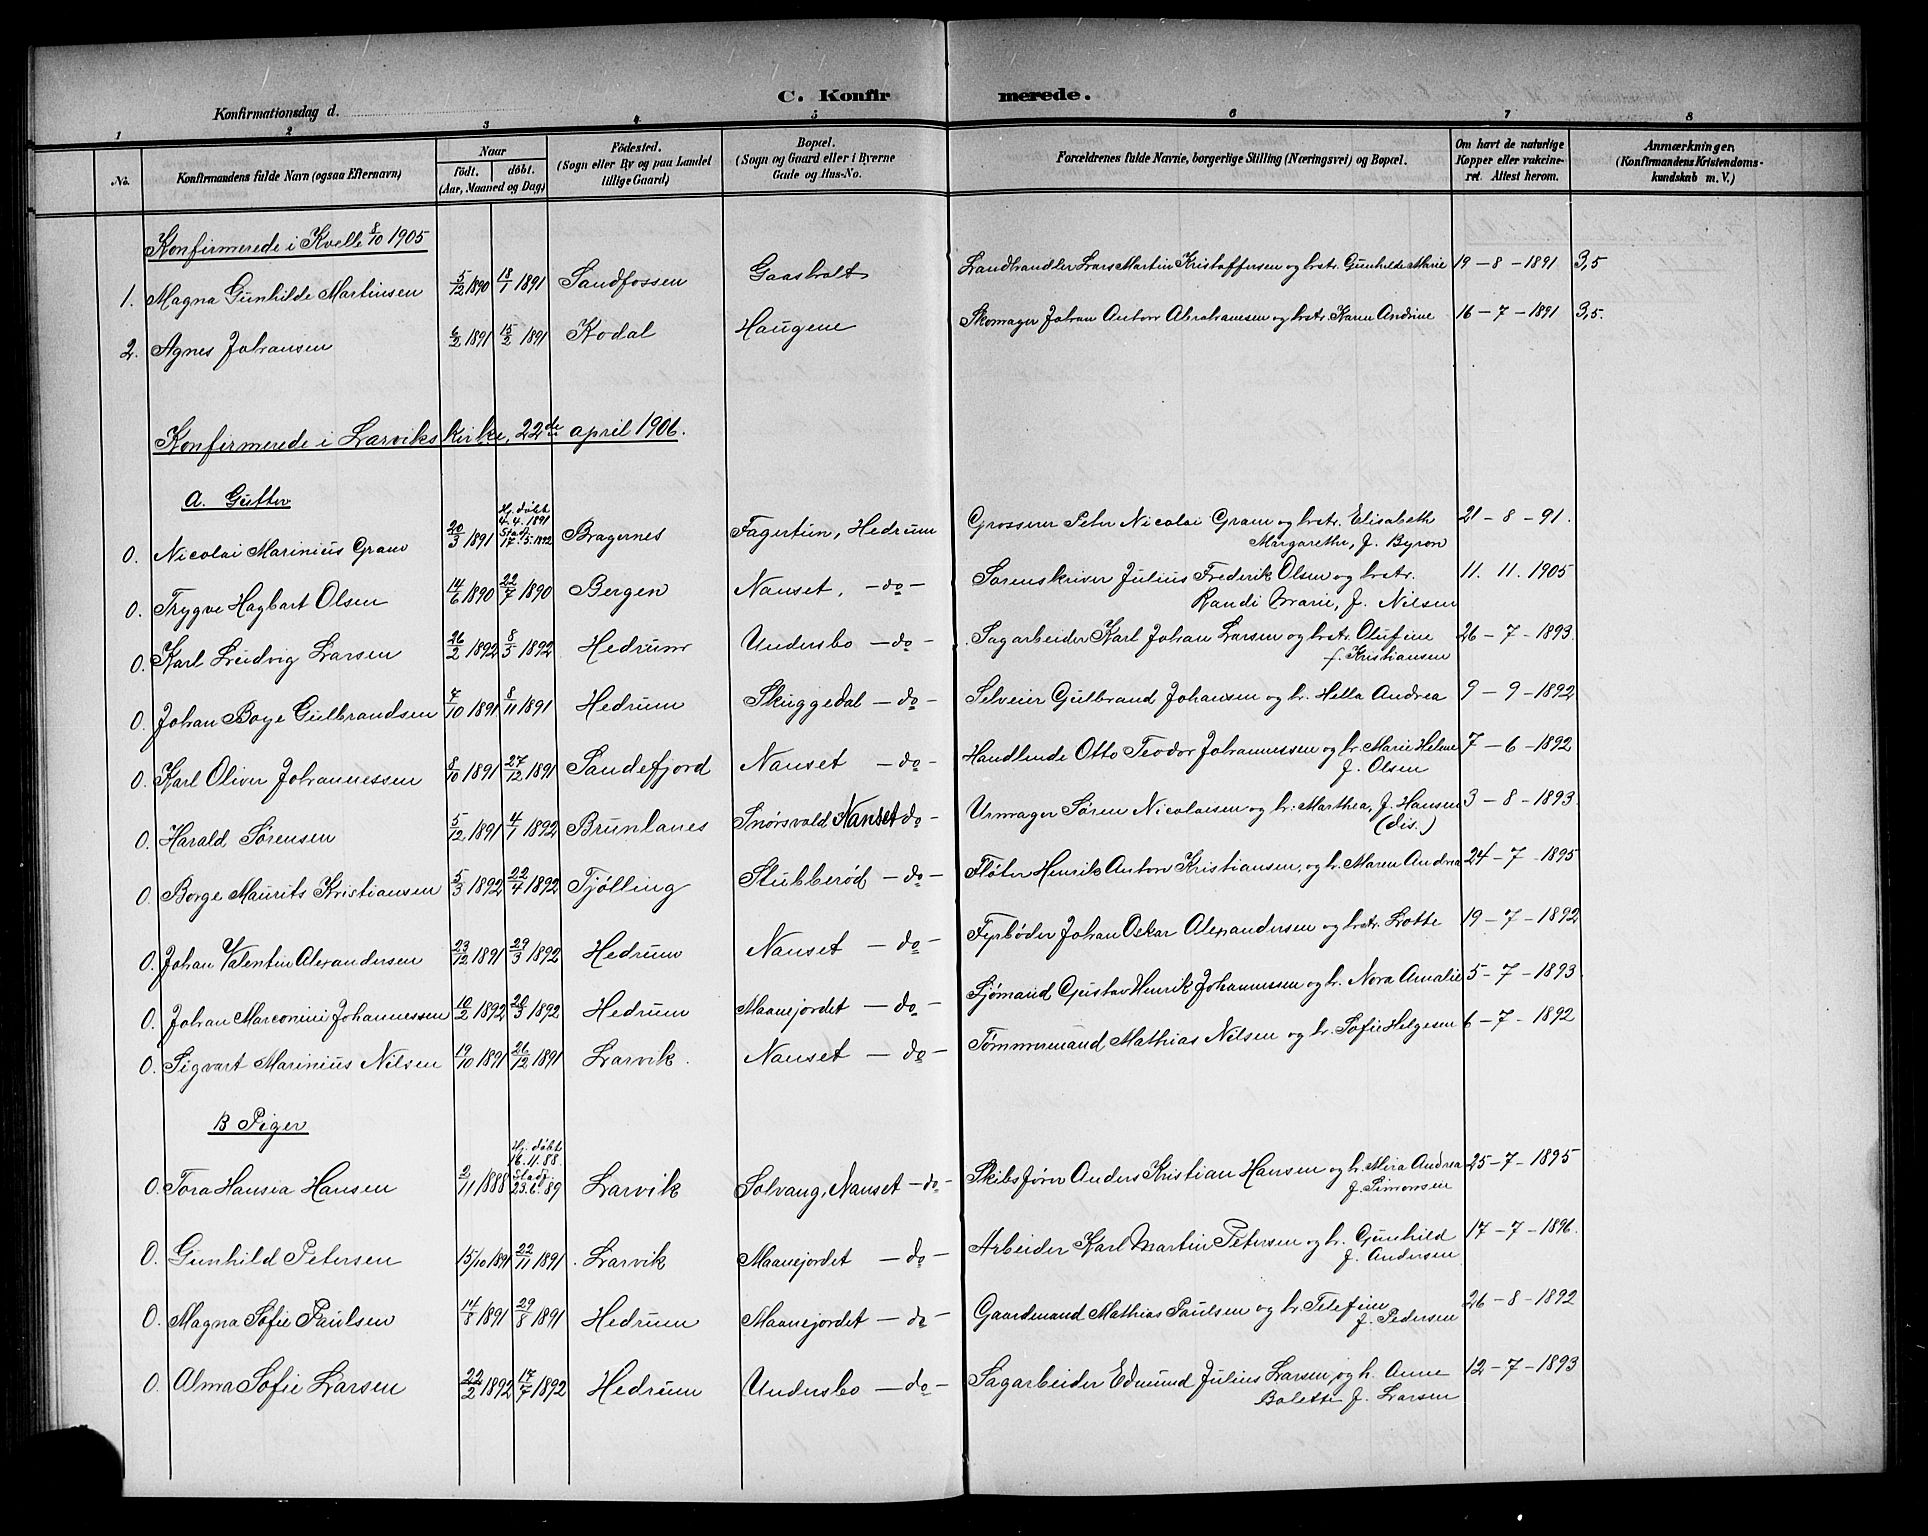 C. Konfirmerede.
Konfirmationsdag d.
1 2 3 4 5 6 7 8
No. Konfirmandens fulde Navn (ogsaa Efternavn) Naar født. døbt. (Aar, Maaned og Dag) Fødested. (Sogn eller By og paa Landet tillige Gaard) Bopæl. (Sogn og Gaard eller i Byerne Gade og Hus-No. Forældrenes fulde Navne, borgerlige Stilling (Næringsvei) og Bopæl. Om havt de naturlige Kopper eller vakcineret. Attest herom. Anmærkninger. (Konfirmandens Kristendomskundskab m. V.)
Konfirmerede i Kvelle 8/10 1905
1. Magna Gunhilde Martinsen 5/12 1890 18/1 1891 Sandfossen Gaasholt Landhandler Lars Martin Kristoffersen og hstr. Gunhilde Marie 19-8-1891 3,5
2. Agnes Johansen 6/2 1891 15/2 1891 Kodal Haugene Skomager Johan Anton Abrahamsen og hstr. Karen Andrine 16-7-1891 3,5.
Konfermerede i Larviks kirke, 22de april 1906.
A. Gutter
0. Nicolai Marinius Gram 20/3 1891 Hj. døbt 4.4.1891 Stadf. 17.5.1892 Bragernes Fagertun, Hedrum Grosserer Peter Nicolai Gram og hstr. Elisabeth 21-8-91.
Margarethe, f. Byron
0. Trygve Hagbart Olsen 14/6 1890 22/7 1890 Bergen Nanset, -do- Sorenskriver Julius Frederik Olsen og hstr. 11. 11. 1905
Randi Marie, f. Nilsen
0. Karl Ludvig Larsen 26/2 1892 8/5 1892 Hedrum Undersbo -do- Sagarbeider Karl Johan Larsen og hstr. Olufine 26-7-1893.
f. Kristiansen
0. Johan Boye Gulbrandsen 4/10 1891 8/11 1891 Hedrum Skuggedal -do- Selveier Gulbrand Johansen og h. Hella Andrea 9-9-1892
0. Karl Oliver Johannessen 8/10 1891 27/12 1891 Sandefjord Nanset -do- Handlende Otto Teodor Johannessen og h. Marie Helene 7-6-1892
f. Olsen
0. Harald Sørensen 5/12 1891 4/1 1892 Brunlanes Snørsvold Nanset do- Urmager Søren Nicolaisen og h. Marthea, f. Hansen 3-8-1893.
(dis.)
0. Borge Maurits Kristiansen 5/3 1892 22/4 1892 Tjølling Stubberød -do- Fløter Henrik Anton Kristiansen, og h. Maren Andrea 24-7-1895
0. Johan Valentin Alexandersen 23/12 1891 29/3 1892 Hedrum Nanset -do- Fyrbøder Johan Oskar Alexandersen og hstr. Lotte 19-7-1892
0. Johan Marconini Johannessen 10/2 1892 20/3 1892 Hedrum Maanejordet -do- Sjømand Gustav Henrik Johannessen og h. Nora Amalie 5-7-1893.
0. Sigvart Marinius Nilsen 19/10 1891 26/12 1891 Larvik. Nanset -do- Tømmermand Mathias Nilsen og h. Sofie Helgesen 6-7-1892
B Piger
0. Tora Hansia Hansen 2/11 1888 Hj. døbt 16.11.88. Stadf. 23.6.89 Larvik Solvang, Nanset -do- Skibsfører Anders Kristian Hansen og h. Mira Andrea 25-7-1895
f. Simonsen
0. Gunhild Petersen 15/10 1891 22/11 1891 Larvik Maanejordet -do- Arbeider Karl Martin Petersen og h. Gunhild 17-7-1896.
f. Andersen
0. Magna Sofie Paulsen 14/8 1891 29/8 1891 Hedrum Maanejordet -do- Gaardmand Mathias Paulsen og h. Telefine 26-8-1892
f. Pedersen
0. Alma Sofie Larsen 22/2 1892 17/7 1892 Hedrum Undersbo -do- Sagarbeider Edmund Julius Larsen, og h. Anne 12-7-1893
Bolette f. Larsen